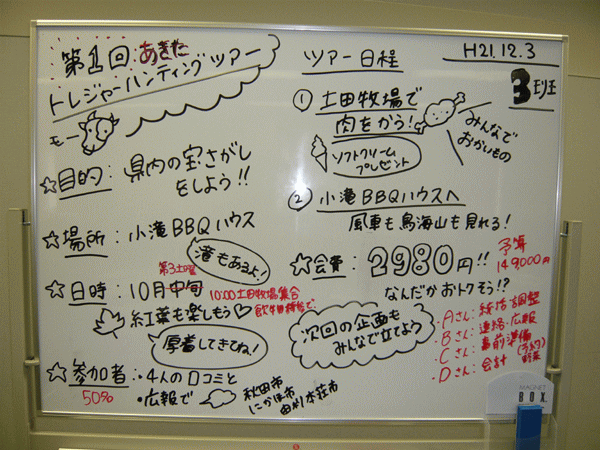 第1回 あきた
トレジャーハンティングツアー
モー
☆目的：県内の宝さがし
をしよう!!
☆場所：小滝BBQハウス
滝もあるよ!
第3土曜
☆日時：10月中旬 10:00土田牧場集合
紅葉も楽しもう♡
厚着してきてね!
☆参加者：・4人の口コミと
50%
・広報で
秋田市
にかほ市
由利本荘市
ツアー日程
① 土田牧場で
肉をかう!
ソフトクリーム
プレゼント
② 小滝BBQハウスへ
風車も鳥海山も見れる!
☆会費：2980円!!
なんだかおトクそう!?
次回の企画も
みんなで立てよう
H21.12.3
3班
みんなで
おかいもの
予算
149,000円
・Aさん：統括・調整
・Bさん：連絡・広報
・Cさん：事前準備
・Dさん：会計
MAGNET
BOX